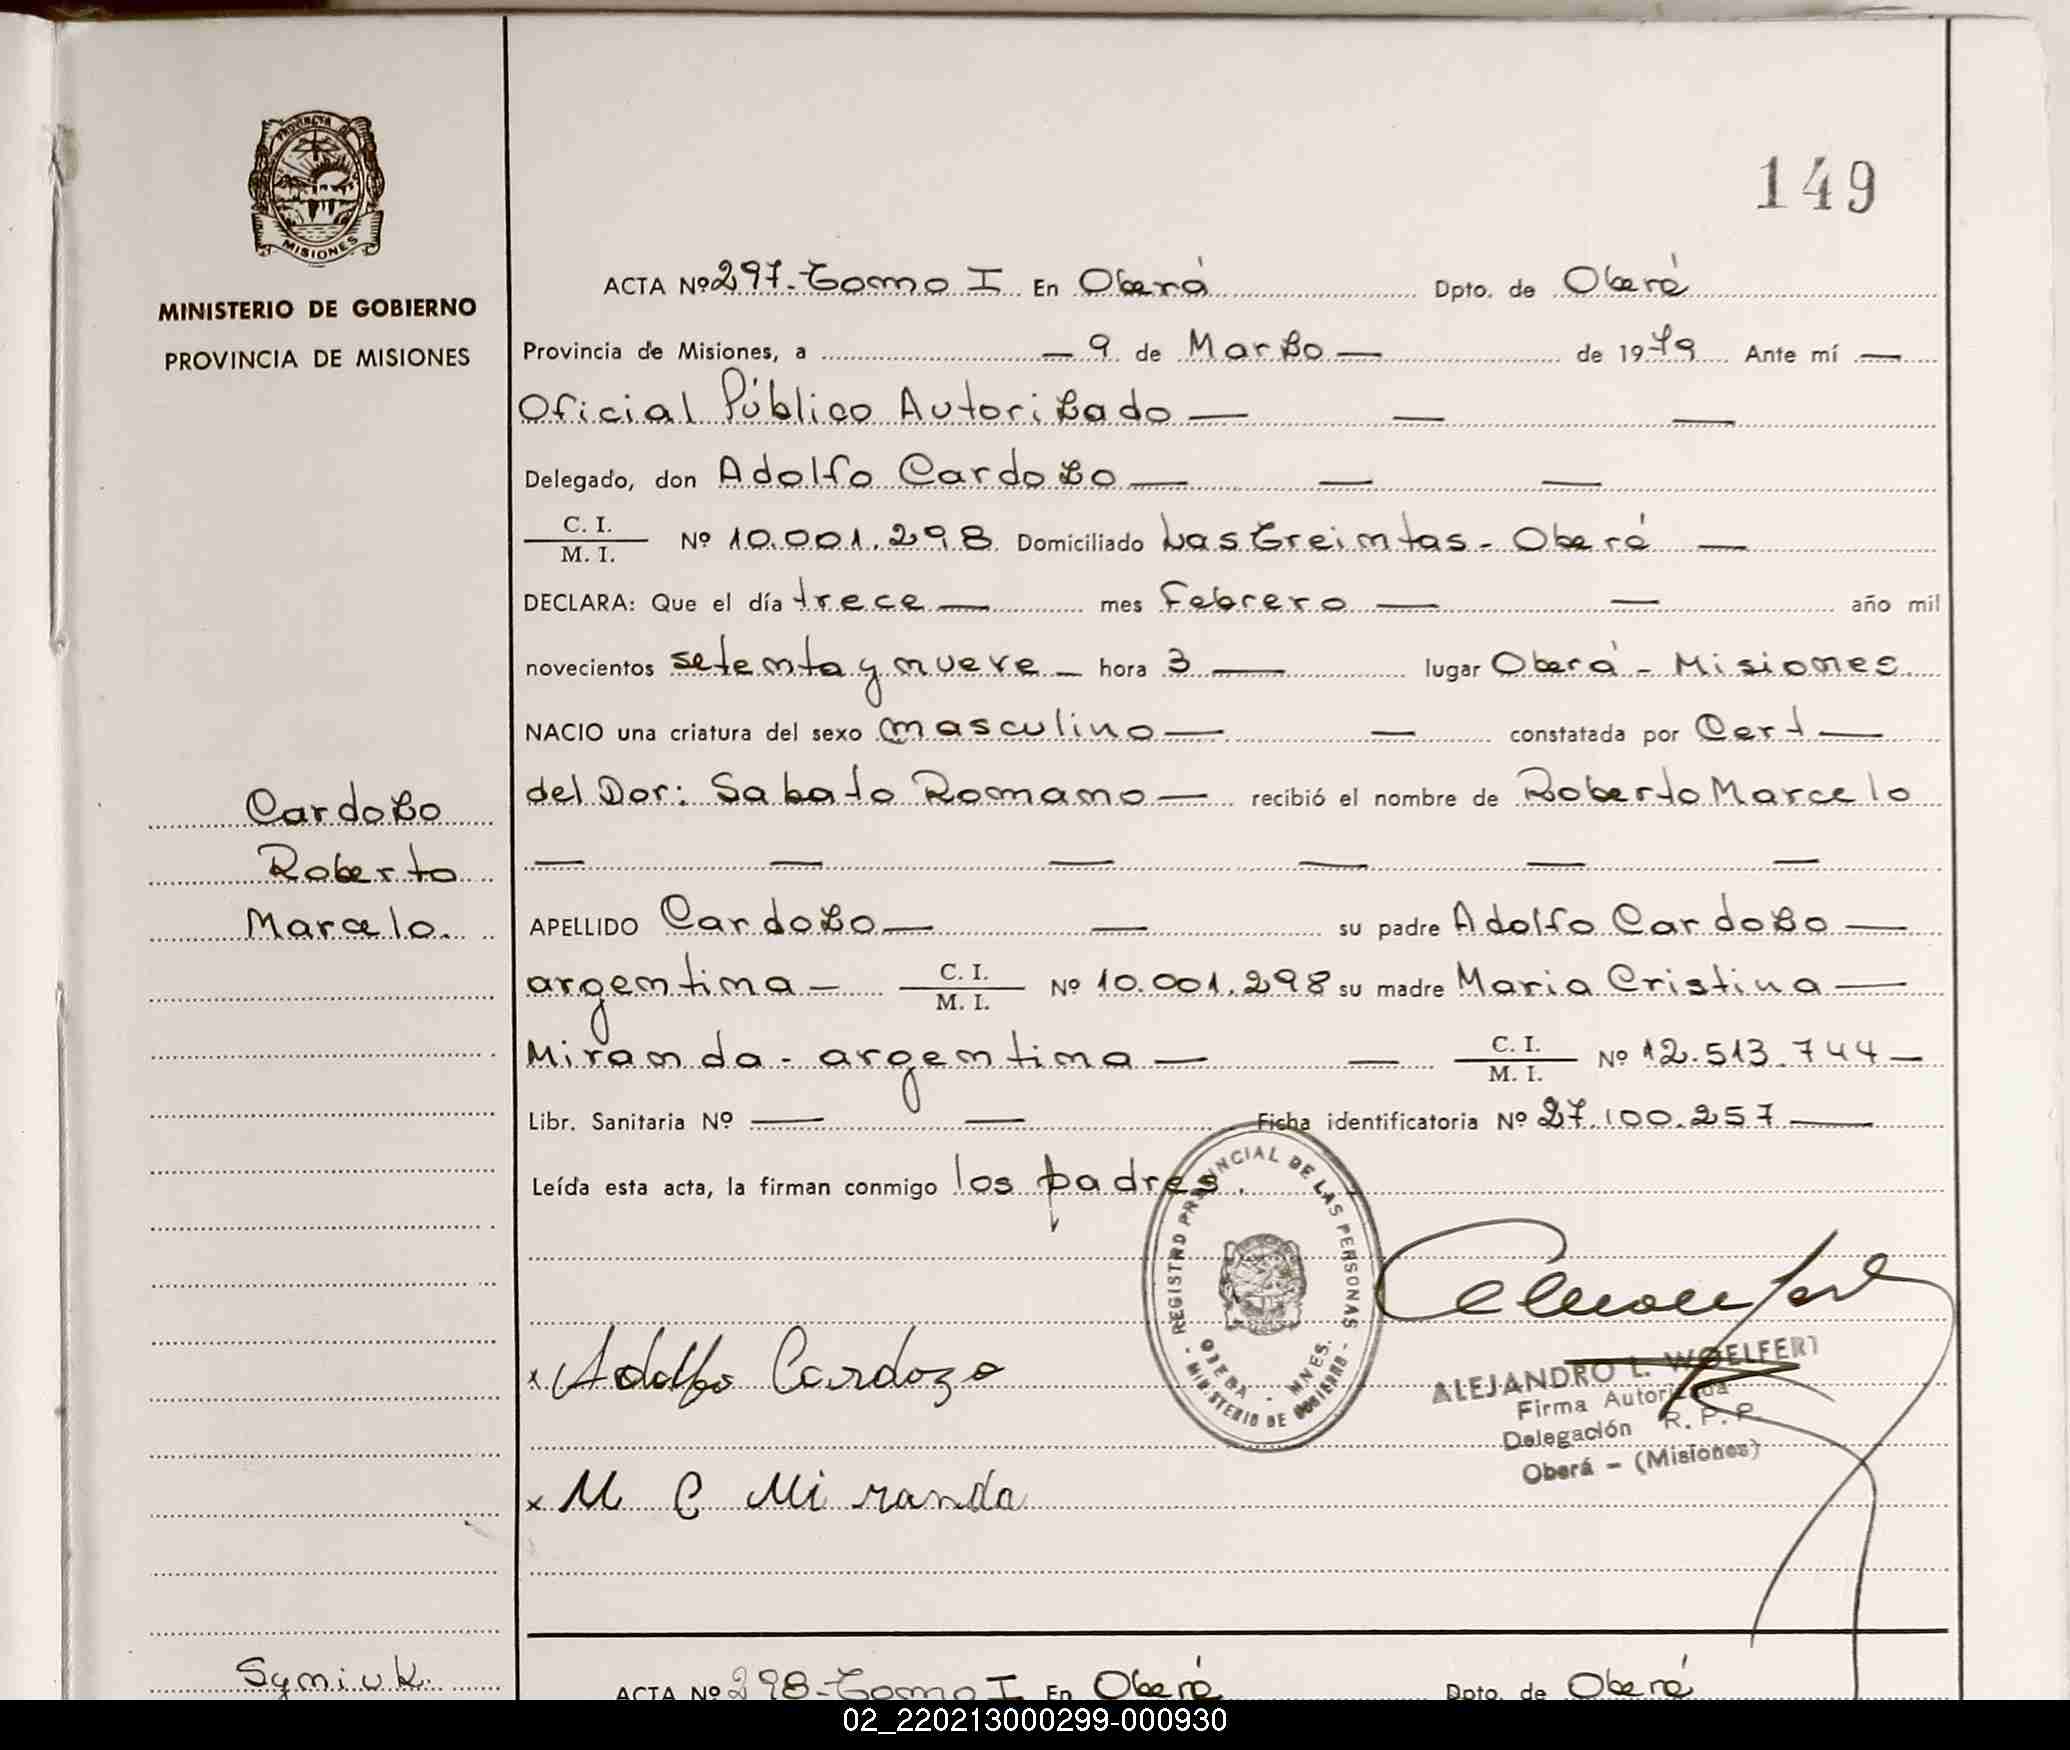 PROVINCIA DE
MISIONES
MINISTERIO DE GOBIERNO
PROVINCIA DE MISIONES
149
ACTA Nº 297-Tomo I En Oberá Dpto. de Oberá
Provincia de Misiones, a — 9 de Marzo — de 1979 Ante mí —
Oficial Público Autorizado — — —
Delegado, don Adolfo Cardozo — — —
C. I.
M. I. Nº 10.001.298 Domiciliado Las Treintas - Oberá —
DECLARA: Que el día trece — mes Febrero — — año mil
novecientos setenta y nueve — hora 3 — lugar Oberá - Misiones
NACIO una criatura del sexo masculino — — constatada por Cert —
del Dor: Sabato Romano — recibió el nombre de Roberto Marcelo
— — — — — —
Cardozo
Roberto
Marcelo.
APELLIDO Cardozo — — su padre Adolfo Cardozo —
argentina — C. I.
M. I. Nº 10.001.298 su madre Maria Cristina —
Miranda - argentina — — C. I.
M. I. Nº 12.513.744 —
Libr. Sanitaria Nº — — Ficha identificatoria Nº 27.100.257 —
Leída esta acta, la firman conmigo los padres.
REGISTRO PROVINCIAL DE LAS PERSONAS
OBERA - MNES.
- MINISTERIO DE GOBIERNO -
x Adolfo Cardozo
ALEJANDRO L. WOELFERT
Firma Autorizada
Delegación R. P. P.
Oberá - (Misiones)
x M C Miranda
Syniuk.
ACTA Nº 298-Tomo I En Oberá Dpto. de Oberá
02_220213000299-000930